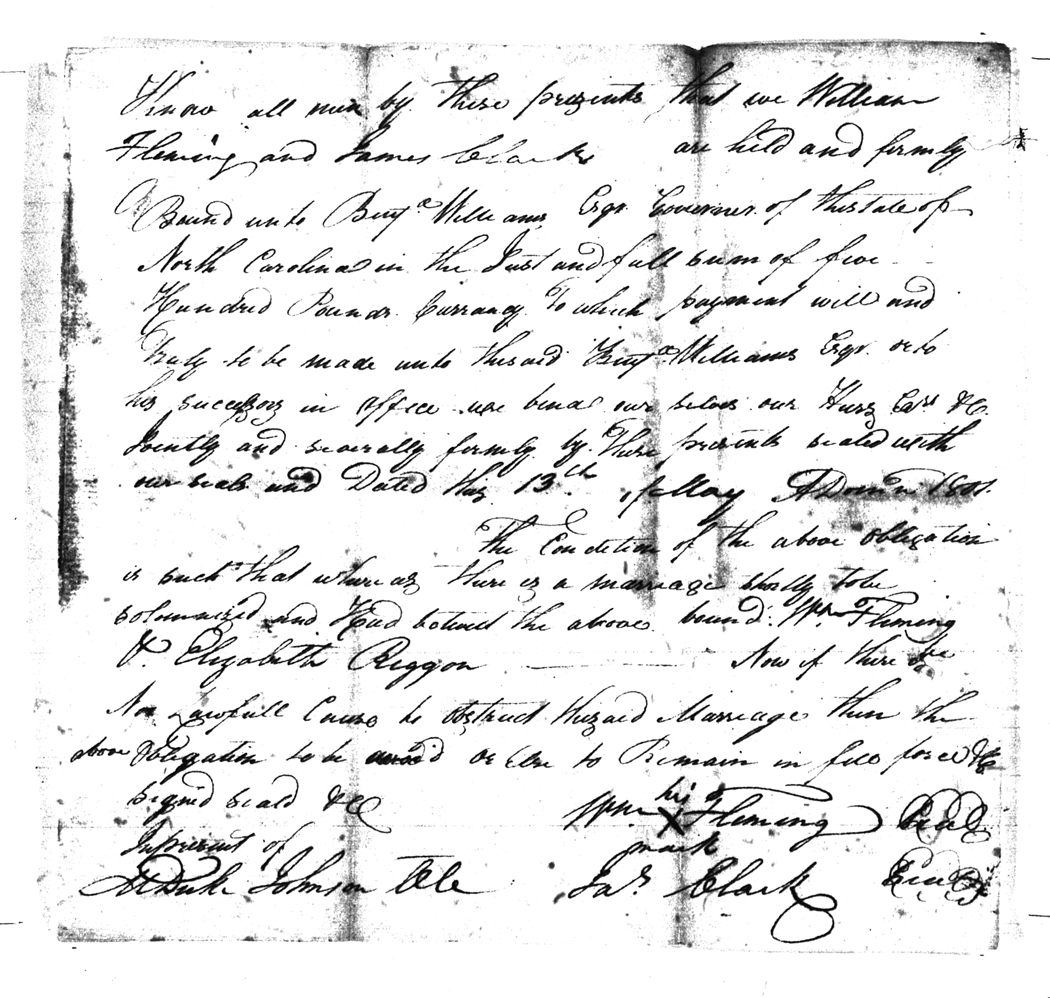 Know all men by these presents that we William
Fleming and James Clark are held and firmly
Bound unto Benja Williams Esqr. Governer of the State of
North Carolina in the Just and full sum of five
Hundred Pounds Currancy To which payment will and
Truly to be made unto the said Benja Williams Esqr. or to
his successors in office we bind our selves our Hurs Exrs &C.
Jointly and severally firmly by These presents sealed with
our seals and Dated this 13th of May A Domn 1801.
The Condition of the above obligation
is such that whereas there is a marriage shortly to be
solemnized and Had betwext the above bound Wm Fleming
& Elizabeth Riggon Now if there be
No Lawfull Cause to obstruct the said Marriage then the
above Obligation to be void or Else to Remain in full force &C
Signd seald &C
In present of
Wm his X mark Fleming Seal
M Duke Johnson
Jas Clark Seal